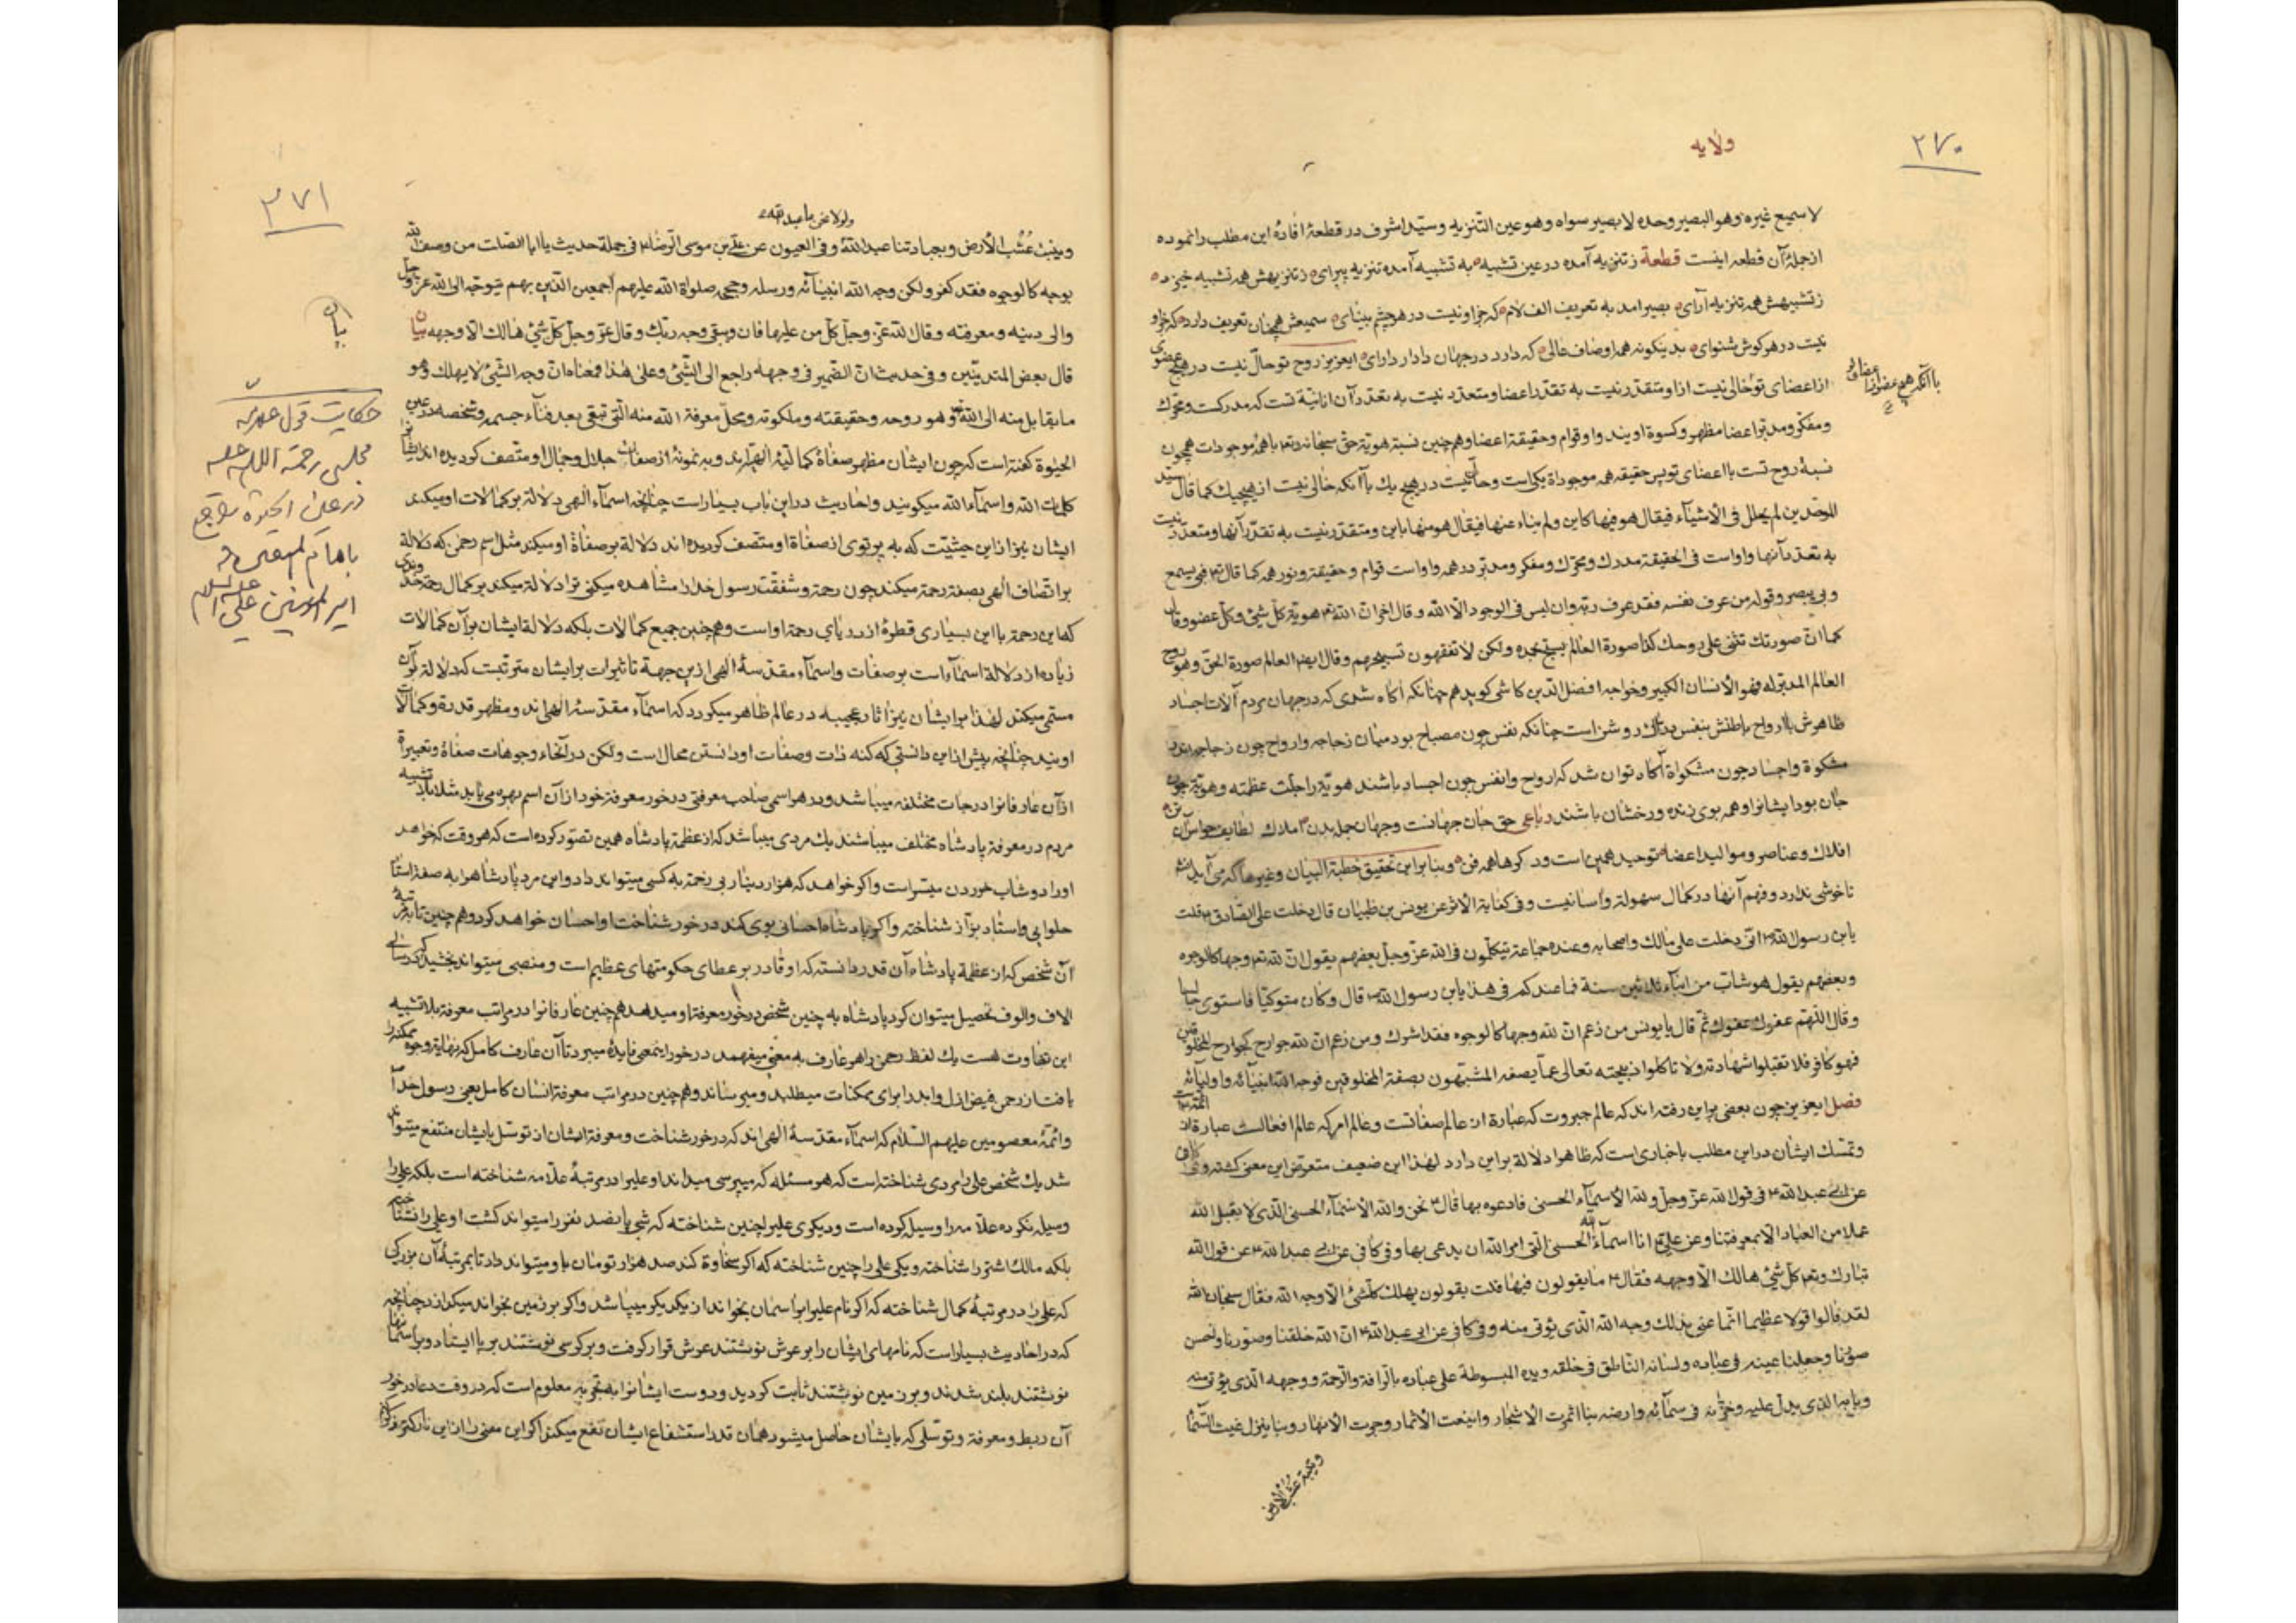 ٢٧٠
ولايه
لا سميع غيره وهو البصير وحده لا بصير سواه وهو عين التنزيه وسيّد اشرف در قطعهٔ افادهٔ اين مطلب را نموده
از جملهٔ آن قطعه اينست قطعة ز تنزيه آمده در عين تشبيه به تشبيه آمده تنزيه پيراى ز تنزيهش همه تشبيه خيزد
ز تشبيهش همه تنزيه آراى بصير امد به تعريف الف لام كه جز او نيست در هر چشم بيناى سميعش همچنان تعريف دارد كه جز او
نيست در هر كوش شنواى بدينكونه همه اوصاف عالى كه دارد در جهان دادار داراى ايعزيز روح تو حالّ نيست در هيچ عضوى
از اعضاى تو خالى نيست ازا و متقدّر نيست به تقدّر اعضا و متعدد نيست به تعدد آن انانيّة تست كه مدركست و محرّك
باآنكه هيچ عضو از اعضاى تو
ومفكّر ومدبّر واعضا مظهر وكسوة اويند واو قوام وحقيقة اعضا وهم چنين نسبة هويّة حق سبحانه وتع باهمه موجودات همچون
نسبة روح تست با اعضاى تو پس حقيقة همه موجودات يكى است وحالّ نيست در هيچ يك باآنكه خالى نيست از هيچيك كما قال سيّد
الموحّدين لم يحلل فى الاشياء فيقال هو فيها كاين ولم يناء عنها فيقال هو منها باين ومتقدّر نيست به تقدّر آنها ومتعدّد نيست
به تعدد آنها واواست فى الحقيقة مدرك ومحرّك ومفكر ومدبّر در همه واواست قوام وحقيقة ونور همه كما قال تع فبى يسمع
وبى يبصر وقوله من عرف نفسه فقد عرف ربّه وان ليس فى الوجود الّا الله وقال اخر انّ الله تع هو هويّة كلّ شىء وكلّ عضو وقال
كما انّ صورتك تثنى على روحك كذا صورة العالم يسبّح بحمده ولكن لا تفقهون تسبيحهم وقال ايضا العالم صورة الحقّ وهو روح
العالم المدبّر له فهو الانسان الكبير وخواجه افضل الدّين كاشى كويد هم چنانكه اكاه شدى كه در جهان مردم آلات اجساد
ظاهرش باارواح باطنش بنفس روشن است چنانكه نفس چون مصباح بود ميان زجاجه وارواح چون زجاجه اندر
مشكوة واجساد چون مشكوة آكاه توان شد كه ارواح وانفس چون اجساد باشند هويّة را جلّت عظمته وهويّة چون
جان بود ايشانرا وهمه بوى زنده ورخشان باشند رباعى حق جان جهانست وجهان جمله بدن املاك لطايف حواس آن تن
افلاك وعناصر ومواليد اعضا توحيد همين است ودكرها همه فن وبنا براين تحقيق خطبة البيان وغيرها كه مى آيد انشاء
ناخوشى ندارد وفهم آنها در كمال سهولة وآسانيست وفى كفاية الاثر عن يونس بن ظبيان قال دخلت على الصّادق ع قلت
يابن رسول الله انّى دخلت على مالك واصحابه وعنده جماعة يتكلّمون فى الله عزّ وجلّ بعضهم يقول انّ لله تع وجها كالوجوه
وبعضهم يقول هو شابّ من ابناء ثلاثين سنة فما عندكم فى هذا يابن رسول الله قال وكان متوكئا فاستوى جالسا
وقال اللّهمّ عفوك عفوك ثمّ قال يا يونس من زعم انّ لله وجها كالوجوه فقد اشرك ومن زعم انّ لله جوارح كجوارح المخلوقين
فهو كافر فلا تقبلوا شهادته ولا تاكلوا ذبيحته تعالى عمّا يصفه المشبّهون بصفة المخلوقين فوجه الله انبيائه واوليائه
فصل ايعزيز چون بعضى براين رفته اند كه عالم جبروت كه عبارة از عالم صفاتست وعالم امر كه عالم افعالست عبارة از ائمّه
وتمسّك ايشان دراين مطلب باخبارى است كه ظاهرا دلالة براين دارد لهذا اين ضعيف متعرّض اين معنى كشته وفى الكافى
عن ابى عبد الله ع فى قول الله عزّ وجلّ ولله الاسماء الحسنى فادعوه بها قال ع نحن والله الاسماء الحسنى الّذى لا يقبل الله
عملا من العباد الّا بمعرفتنا وعن على ع انا اسماء الله الحسنى الّتى امر الله ان يدعى بها وفى كافى عن ابى عبد الله ع عن قول الله
تبارك وتع كلّ شىء هالك الّا وجهه فقال ع ما يقولون فيها قلت يقولون يهلك كلّ شىء الّا وجه الله فقال سبحان الله
لقد قالوا قولا عظيما انّما عنى بذلك وجه الله الّذى يؤتى منه وفى كافى عن ابى عبد الله ع انّ الله خلقنا وصوّرنا واحسن
صورنا وجعلنا عينه فى عباده ولسانه النّاطق فى خلقه ويده المبسوطة على عباده بالرّافة والرّحمة ووجهه الّذى يؤتى منه
وبابه الذى يدلّ عليه وخزّانه فى سمائه وارضه بنا اثمرت الاشجار واينعت الاثمار وجرت الانهار وبنا ينزل غيث السّماء
وينبت عشب الارض
٢٧١
ولولا نحن ما عبد الله
وينبت عُشُب الأرض وبعبادتنا عبد الله وفى العيون عن على بن موسى الرّضا ع فى جملة حديث يا ابا الصّلت من وصف الله
بوجه كالوجوه فقد كفر ولكن وجه الله انبيائه ورسله وحججه صلواة الله عليهم اجمعين الّذين بهم يتوجّه الى الله عزّ وجلّ
والى دينه ومعرفته وقال الله عزّ وجلّ كلّ من عليها فان ويبقى وجه ربّك وقال عزّ وجلّ كلّ شىء هالك الّا وجهه بيان
بيان
قال بعض المتديّنين وفى حديث انّ الضّمير فى وجهه راجع الى الشّىء وعلى هذا فمعناه انّ وجه الشّىء لا يهلك وهو
ما يقابل منه الى الله وهو روحه وحقيقته وملكوته ومحلّ معرفة الله منه الّتى تبقى بعد فناء جسمه وشخصه در عين
الحيوة كفته است كه چون ايشان مظهر صفاة كماليّة الهى اند وبه نمونهٔ از صفات جلال وجمال او متصف كرديده اند ايشانرا
كلمات الله واسماء الله ميكويند واحاديث دراين باب بسيار است چنانچه اسماء الهى دلالة بر كمالات او ميكند
ايشان نيز ازاين حيثيّت كه به پرتوى از صفاة او متصف كرديده اند دلالة بر صفاة او ميكند مثل اسم رحمن كه دلالة
بر اتصاف الهى بصفة رحمة ميكند چون رحمة وشفقّت رسول خدا را مشاهده ميكنى ترا دلالة ميكند بر كمال رحمة خداوندى
كه اين رحمة بااين بسيارى قطرهٔ از درياى رحمة اواست وهم چنين جميع كمالات بلكه دلالة ايشان بر آن كمالات
زياده از دلالة اسماء است بر صفات واسماء مقدسهٔ الهى ازين جهة تاثيرات بر ايشان مترتّبست كه دلالة بر آن
مسمّى ميكند لهذا بر ايشان نيز آثار عجيبه در عالم ظاهر ميكردد كه اسماء مقدّسهٔ الهى اند ومظهر قدرة وكمالات
اويند چنانچه پيش ازاين دانستى كه كنه ذات وصفات او دانستن محال است ولكن در انحاء وجوهات صفاة وتعبيراة
ازآن عارفانرا درجات مختلفه ميباشد ودر هر اسمى صاحب معرفتى در خور معرفة خود ازآن اسم بهره مى يابد مثلا بلا تشبيه
مردم در معرفة پادشاه مختلف ميباشند يك مردى ميباشد كه از عظمة پادشاه همين تصوّر كرده است كه هر وقت كه خواهد
اورا دوشاب خوردن ميسّر است واكر خواهد كه هزار دينار بى زحمة به كسى ميتواند داد واين مرد پادشاه را به صفة استاد
حلوايى واستاد بزّاز شناخته واكر پادشاه احسانى بوى كند در خور شناخت او احسان خواهد كرد وهم چنين تا بمرتبهٔ
آن شخص كه از عظمة پادشاه آن قدر دانسته كه او قادر بر عطاى حكومتهاى عظيم است ومنصبى ميتواند بخشيد كه سالى
الاف والوف تحصيل ميتوان كرد پادشاه به چنين شخص در خور معرفة او ميدهد هم چنين عارفانرا در مراتب معرفة بلا تشبيه
اين تفاوت هست يك لفظ رحمن را هر عارف به معنى ميفهمد در خور اينمعنى فايده ميبرد تا آن عارف كامل كه نهاية وجوه ممكنه را
يافته از رحمن فيض ازل وابد را براى ممكنات ميطلبد وميرساند وهم چنين در مراتب معرفة انسان كامل يعنى رسول خدا
وائمّهٔ معصومين عليهم السّلام كه اسماء مقدسهٔ الهى اند كه در خور شناخت ومعرفة ايشان از توسّل بايشان منتفع ميتوان
شد يك شخص على را مردى شناخته است كه هر مسئله كه ميپرسى ميداند او على را در مرتبهٔ علّامه شناخته است بلكه على را
وسيله نكرده علّامه را وسيله كرده است وديكرى على را چنين شناخته كه شبى پانصد نفر را ميتواند كشت او على را نشناخته
بلكه مالك اشتر را شناخته ويكى على را چنين شناخته كه اكر سخاوة كند صد هزار تومان باو ميتواند داد تا بمرتبهٔ آن بزركى
كه على را در مرتبهٔ كمال شناخته كه اكر نام على را بر آسمان بخواند از يكديكر ميپاشد واكر بر زمين بخواند ميكدازد چنانچه
كه در احاديث بسيار است كه نامهاى ايشان را بر عرش نوشتند عرش قرار كرفت وبر كرسى نوشتند بر پا ايستاد وبر آسمانها
نوشتند بلند شدند وبر زمين نوشتند ثابت كرديد ودوست ايشانرا به تجربه معلوم است كه در وقت دعا در خور
آن ربط ومعرفة وتوسّلى كه بايشان حاصل ميشود همان قدر استشفاع ايشان نفع ميكند اكر اين معنى را ازاين نازكتر
حكايت قول علامه
مجلسى رحمة الله عليه
در عين الحيوة راجع
باهام
امير المومنين على عليه السلام